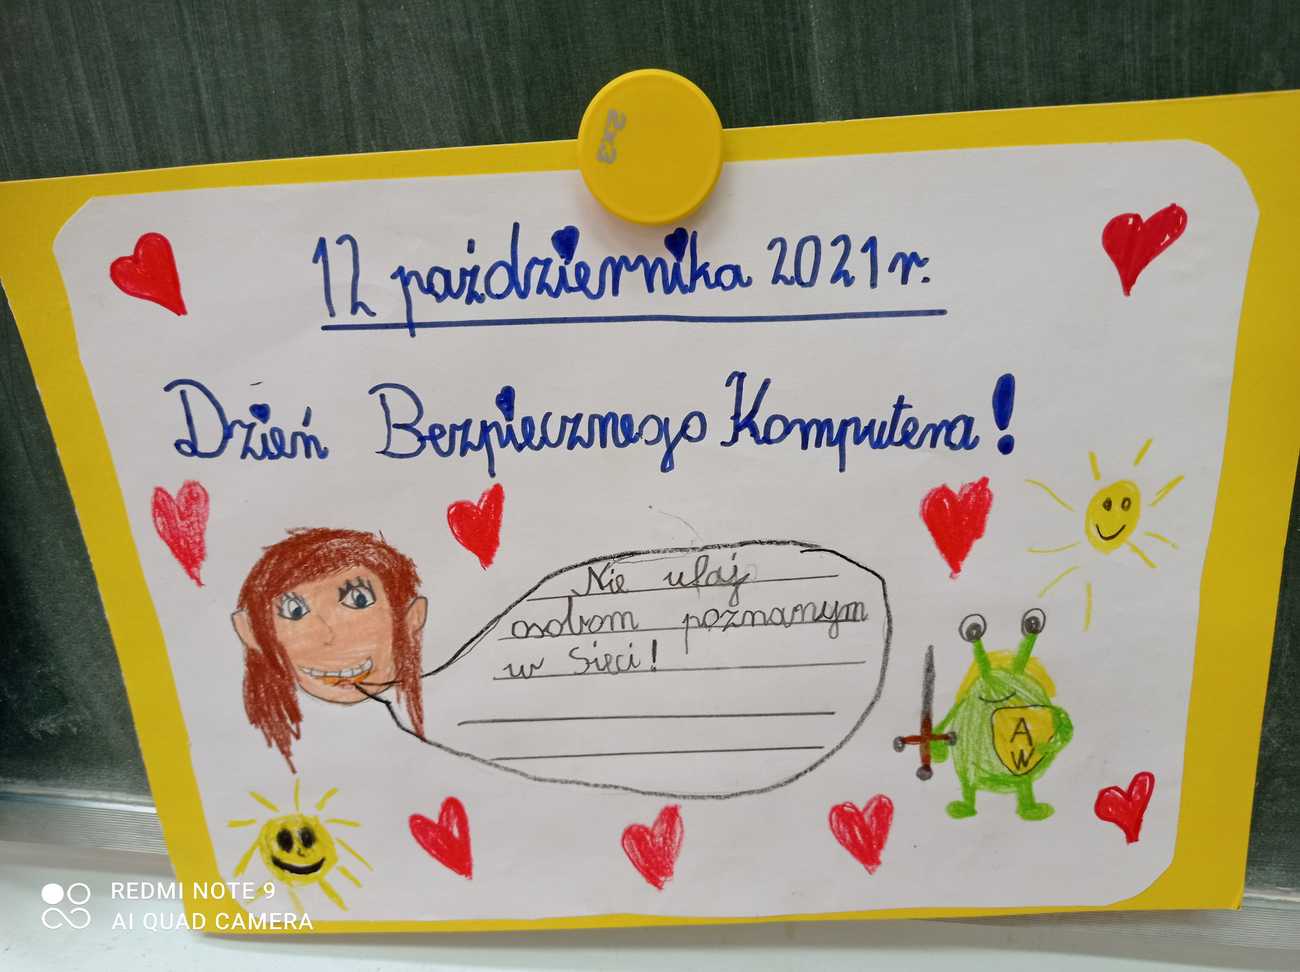 2x3
12 października 2021 r.
Dzień Bezpiecznego Komputera!
Nie ufaj
osobom poznanym
w Sieci!
A
W
REDMI NOTE 9
AI QUAD CAMERA